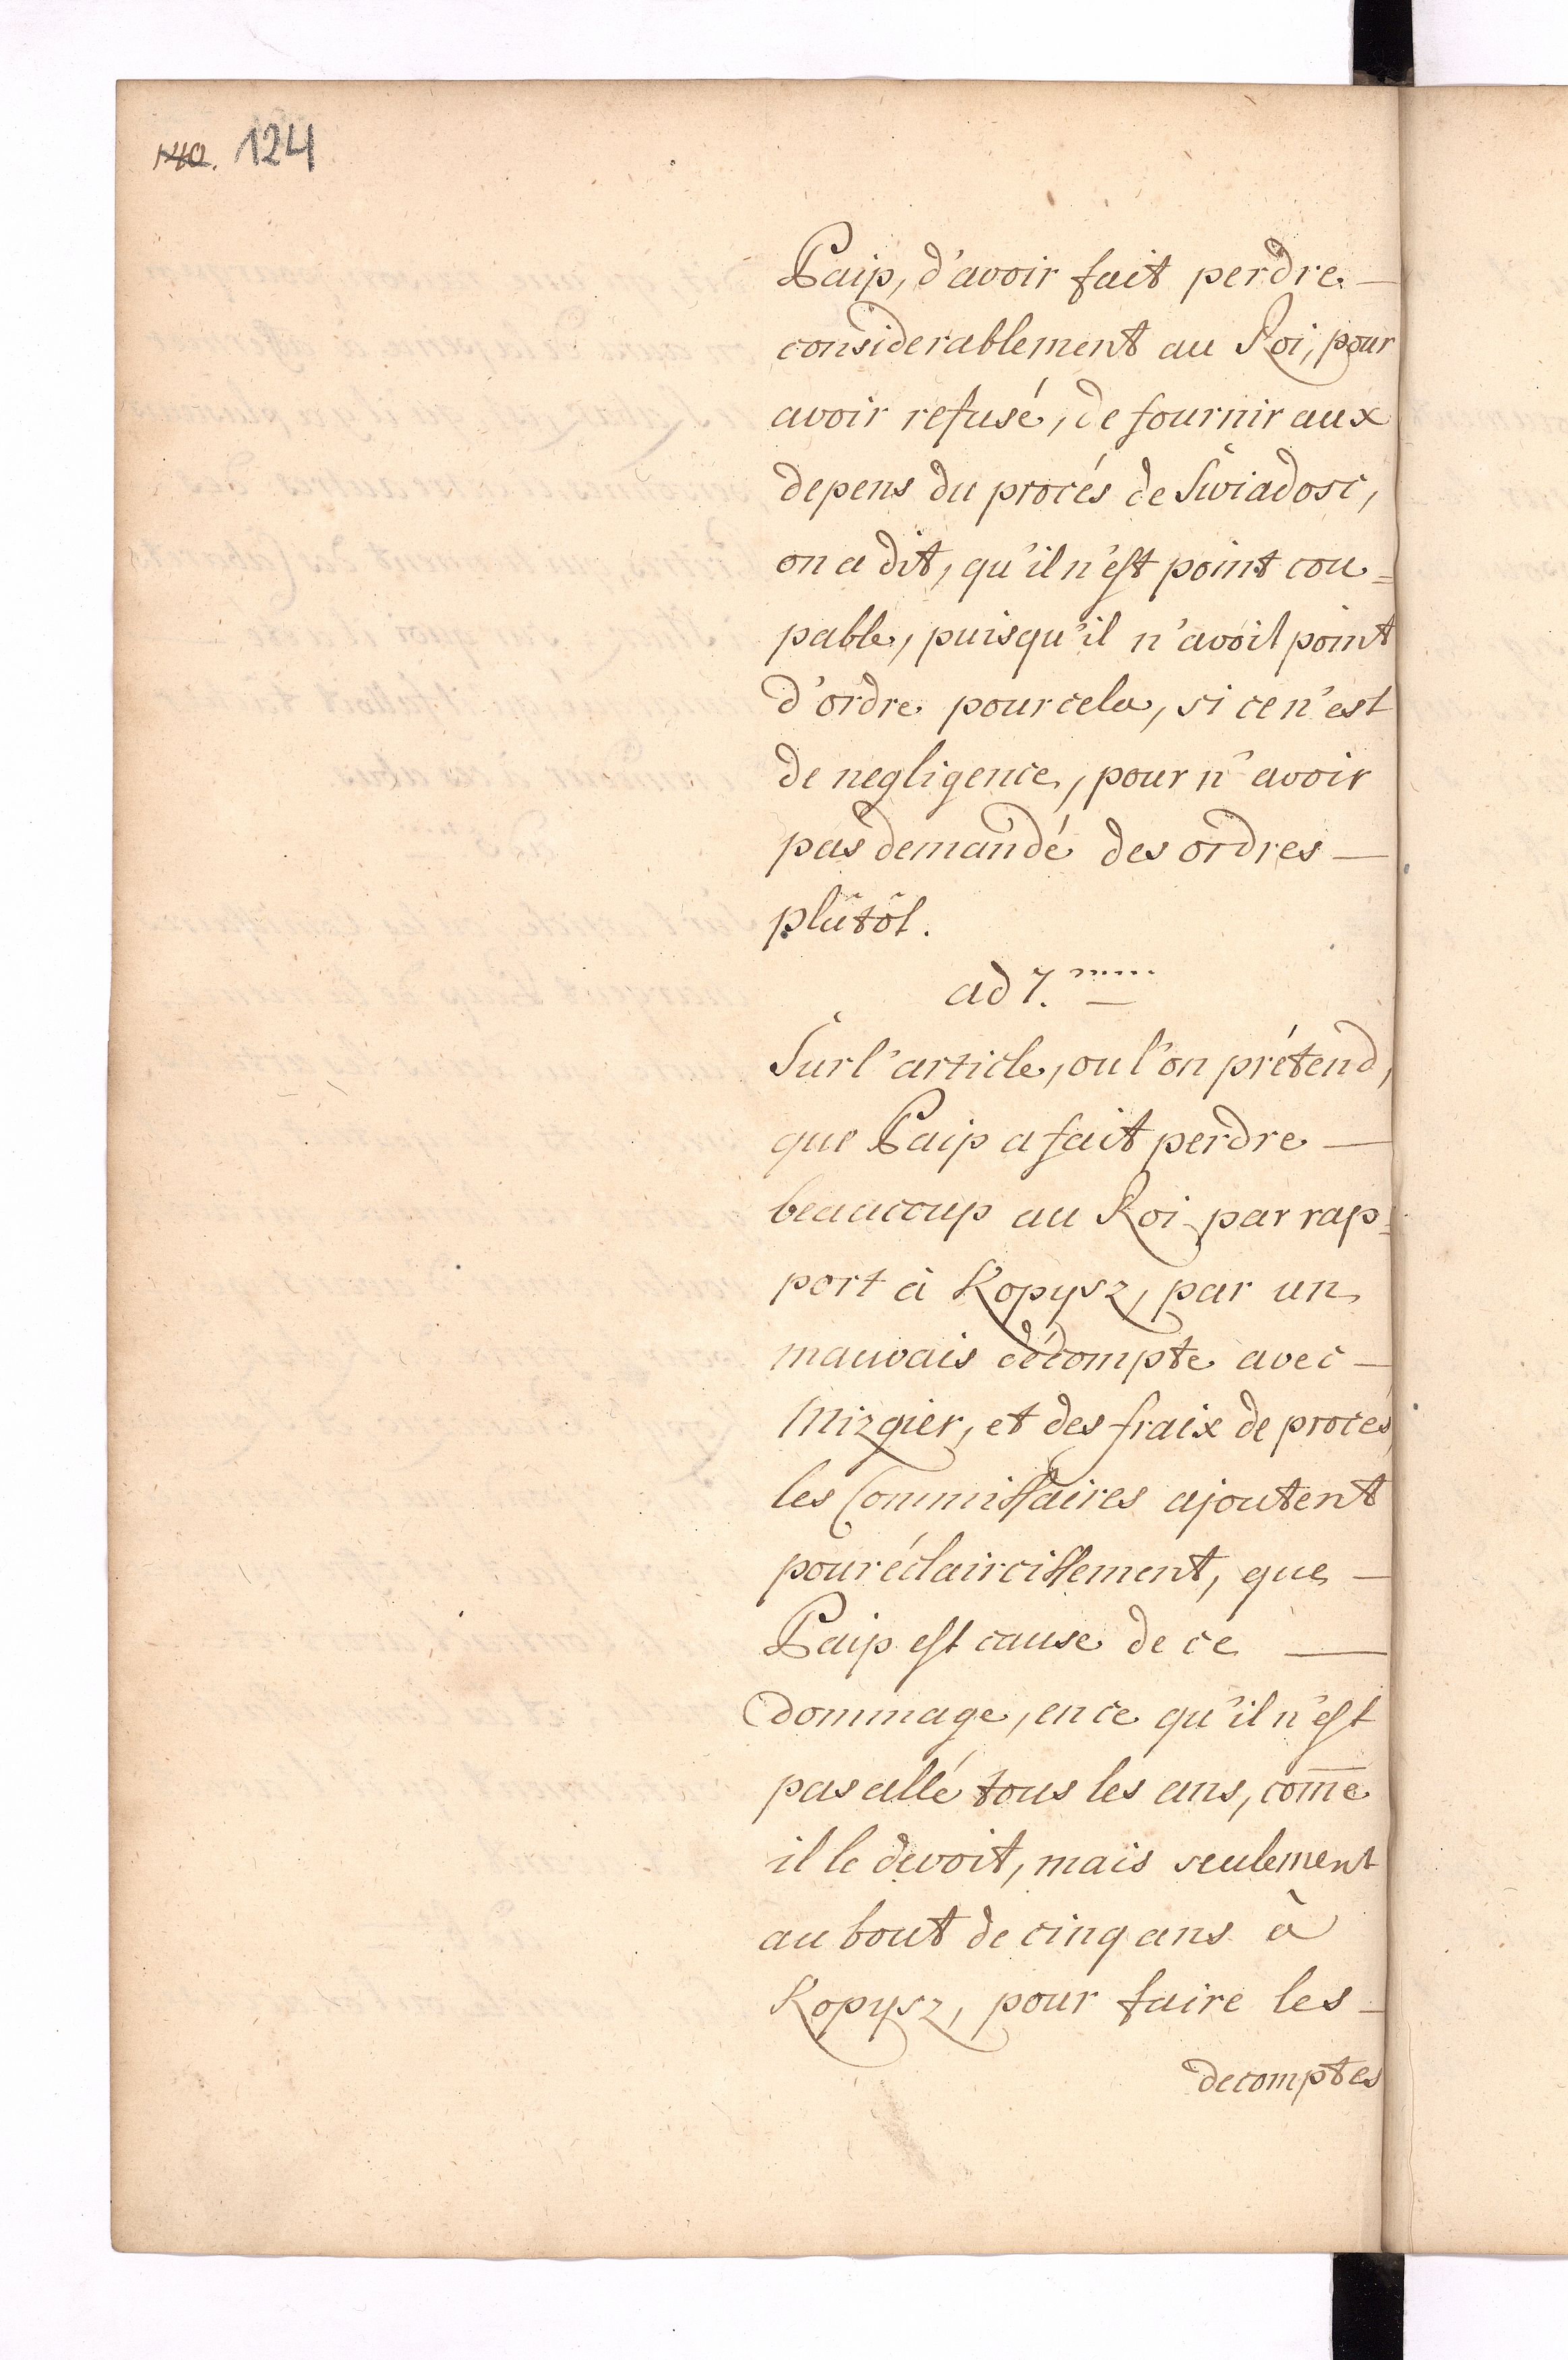 140. 124
Paip, d'avoir fait perdre —
considerablement au Roi, pour
avoir refusé, de fournir aux
depens du procés de Swiadosc,
on a dit, qu'il n'est point cou=
pable, puisqu'il n'avoit point
d'ordre pour cela, si ce n'est
de negligence, pour n'avoir
pas demandé des ordres —
plûtôt.
ad 7.mum
Sur l'article, ou l'on prétend,
que Paip a fait perdre —
beaucoup au Roi par rap=
port à Kopysz, par un
mauvais décompte avec —
Mizgier, et des fraix de procés,
les Commissaires ajoutent
pour éclaircissement, que —
Paip est cause de ce —
dommage, en ce qu'il n'est
pas allé tous les ans, com̄e
il le devoit, mais seulement
au bout de cinq ans à
Kopysz, pour faire les —
decomptes